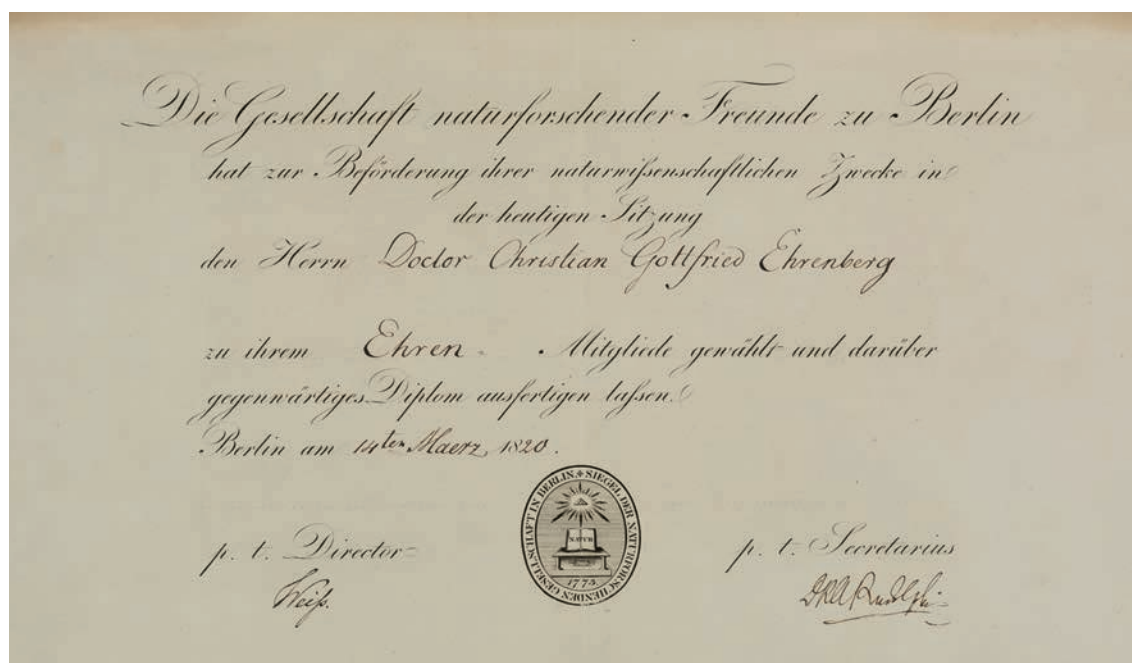 Die Gesellschaft naturforschender Freunde zu Berlin
hat zur Beförderung ihrer naturwißenschaftlichen Zwecke in
der heutigen Sitzung
den Herrn Doctor Christian Gottfried Ehrenberg
zu ihrem Ehren - Mitgliede gewählt und darüber
gegenwärtiges Diplom ausfertigen laßen.
Berlin am 14ten Maerz 1820.
SIEGEL DER NATURFORSCHENDEN GESELLSCHAFT IN BERLIN
NATUR
1773
p. t. Director
p. t. Secretarius
Weiß.
D K A Rudolphi